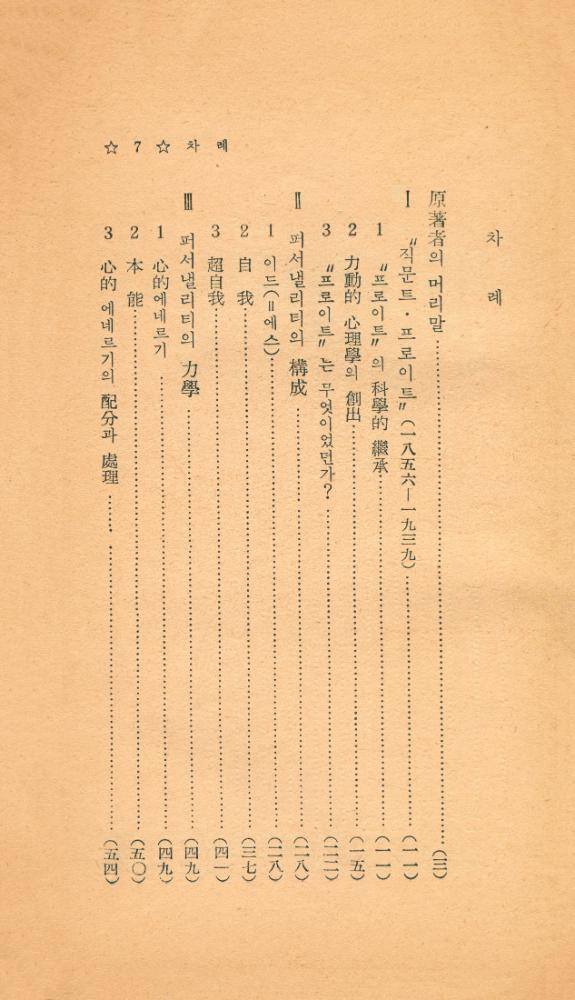 차 례
原著者의 머리말……(三)
Ⅰ "직문트·프로이트"(一八五六—一九三九)……(一一)
1 "프로이트"의 科學的 繼承……(一一)
2 力動的 心理學의 創出……(一五)
3 "프로이트"는 무엇이었던가?……(二二)
Ⅱ 퍼서낼리티의 構成……(二八)
1 이드(=에스)……(二八)
2 自 我……(三七)
3 超自我……(四一)
Ⅲ 퍼서낼리티의 力學……(四九)
1 心的에네르기……(四九)
2 本 能……(五〇)
3 心的 에네르기의 配分과 處理……(五四)
☆ 7 ☆ 차 례